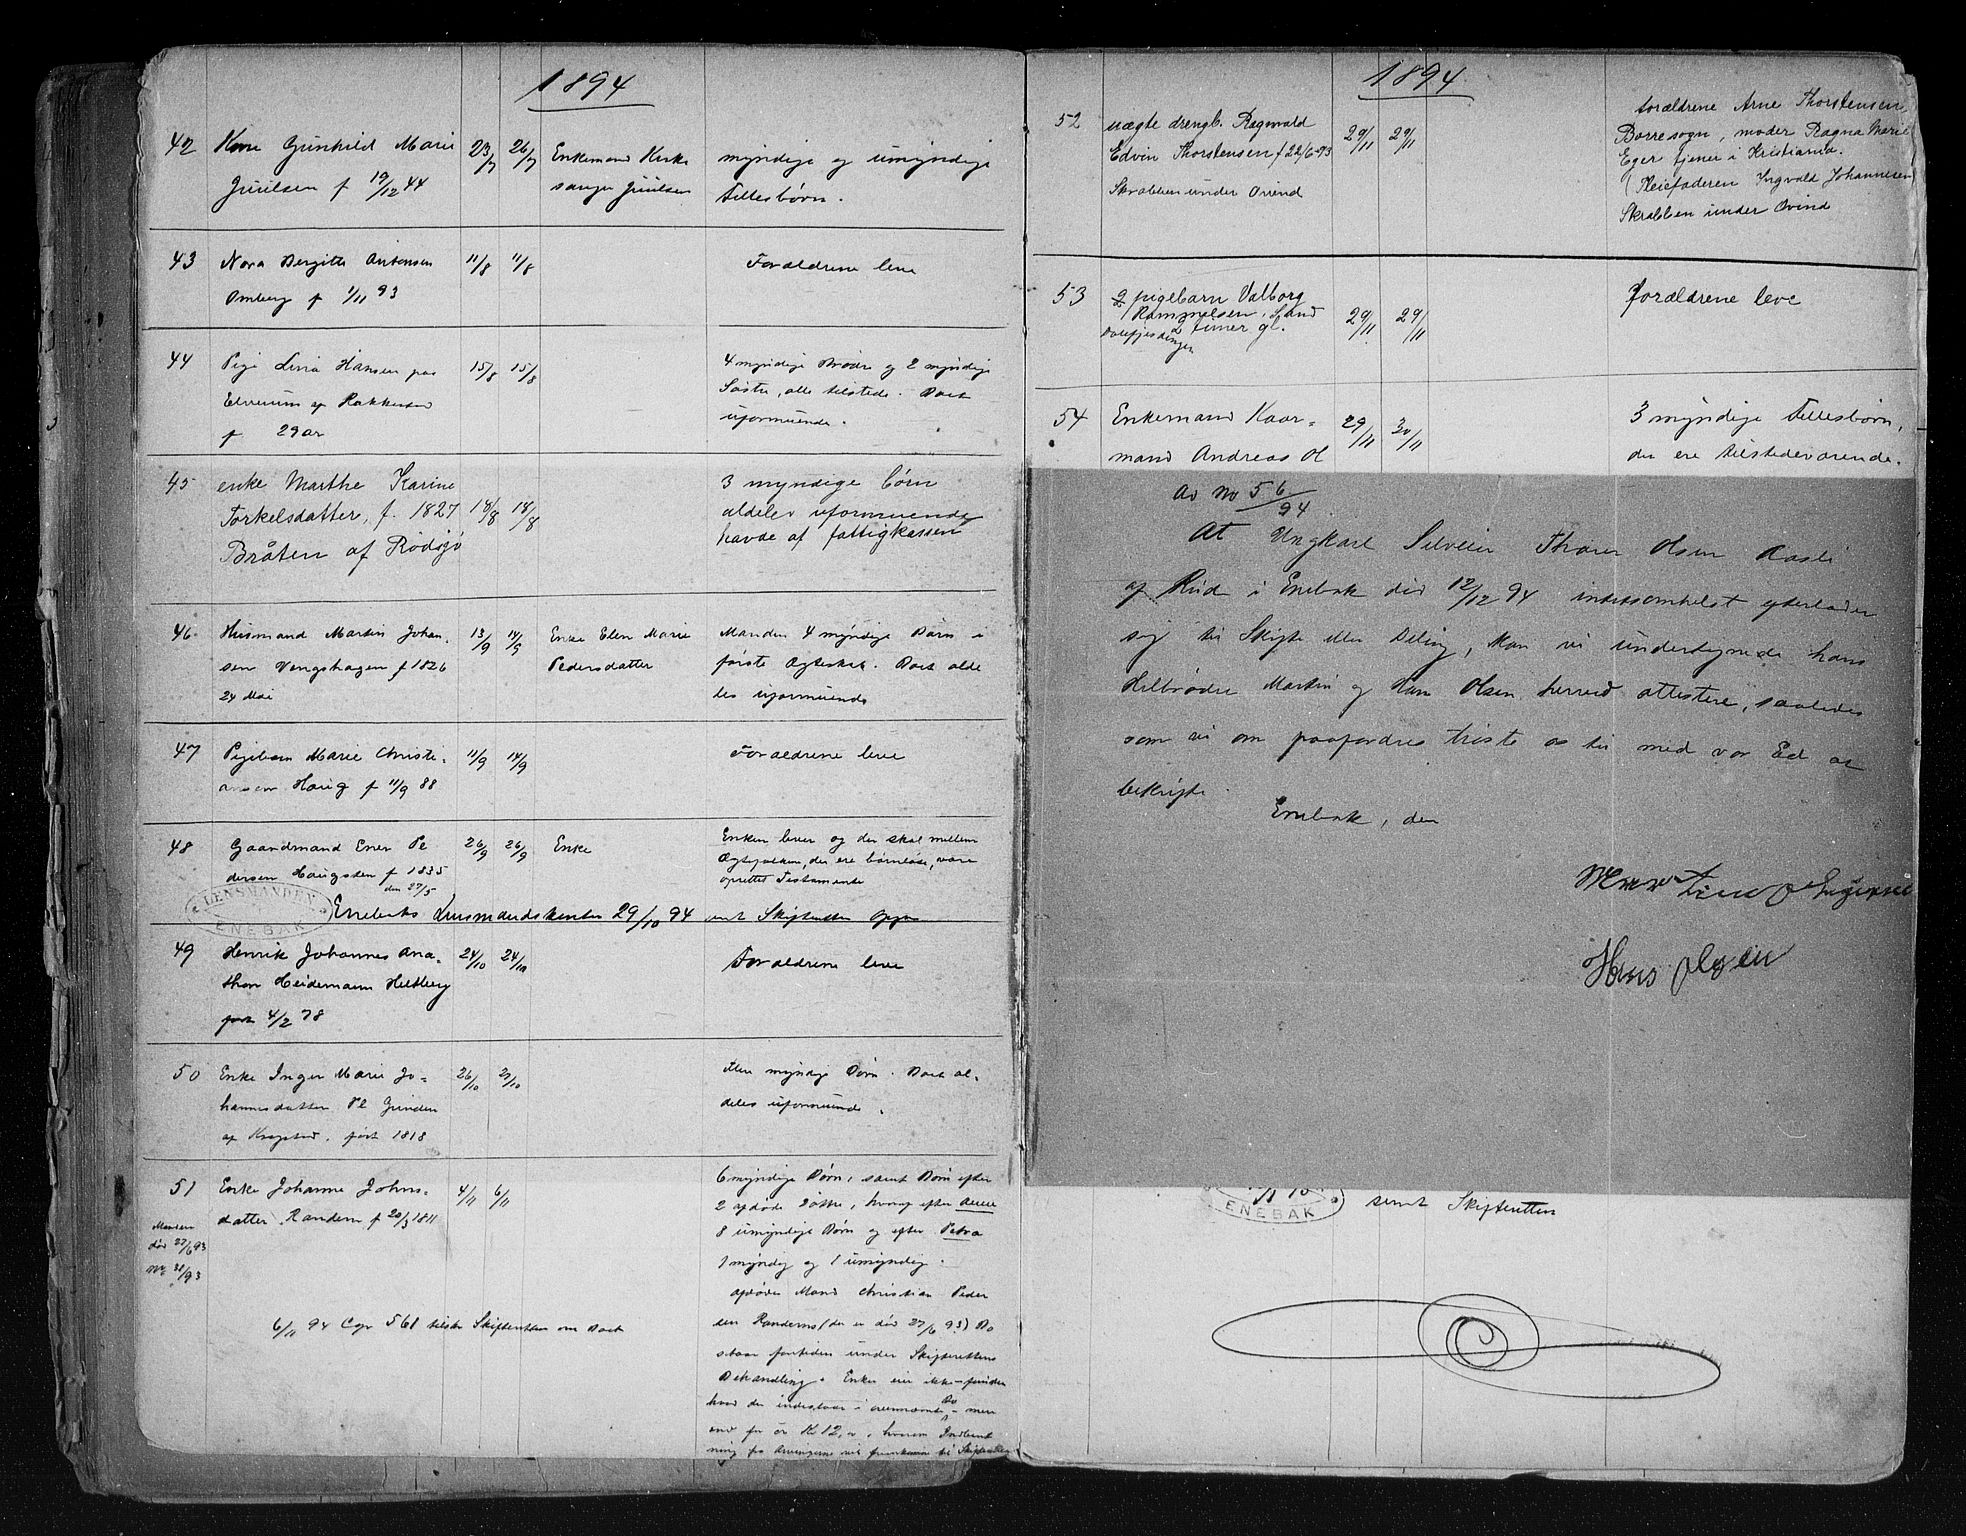 1894
42 Kone Gunhild Marie 23/7 26/7 Enkemand Kirke myndige og umyndige
Juulsen f 19/12 44 sanger Juulsen Fellesbørn.
43 Nora Bergitte Antonsen 11/8 11/8 Forældrene leve
Omberg f 1/11 93
44 Pige Lina Hansen paa 15/8 15/8 4 myndige Brødre og 2 myndige
af Rakkestad Søstre, alle tilstede. Boet
f 29 aar uformuende.
45 enke Marthe Karine 3 myndige børn
Torkelsdatter, f. 1827 18/8 18/8 aldeles uformuende
Bråten af Rødsjø havde af fattigkassen
46 Husmand Martin Johan- 13/9 14/9 Enke Elen Marie Manden 4 myndige Børn i
sen Vengshagen f 1826 Pedersdatter første Ægteskab. Boet alde
24 Mai les uformuende
47 Pigebarn Marie Christi- 11/9 14/9 Forældrene leve
ansen Haug f 11/9 88
48 Gaardmand Ener Pe 26/9 26/9 Enke Enken lever og der skal mellem
dersen Haugsten f 1835 Ægtefolkene, der ere børnløse, være
den 27/5 oprettet Testamente
LENSMANDEN I
ENEBAK
Enebaks Lensmandskontor 29/10 94 sent Skifteretten
49 Henrik Johannes Ana- 24/10 24/10 Forældrene leve
thon Heidemann Hilberg
født 4/2 78
50 Enke Inger Marie Jo- 26/10 27/10 flere myndige Børn. Boet al-
hannesdatter Pl Grinden deles uformuende.
af Krogstad, født 1818
51 Enke Johanne Johns- 4/11 6/11 6 myndige Børn, samt Børn efter
datter Randem f 20/3 1811 2 afdøde Døttre, hvoraf efter
Manden 8 umyndige Børn og efter Petra
død 27/6 93 1 myndig og 1 umyndig.
No 31/93 afdødes Mand Christian Peder
6/11 94 Cgr 561 tilskr Skifteretten om Boet sen Randems (der er død 27/6 93) Bo
staar fortiden under Skifterettens
Behandling. Enken eier ikke
hvad der indestaar i ovennævnte Bo
12, hvorom
Skifteretten
1894
52 uægte drengb. Ragnvald 29/11 29/11 forældrene Arne Thorstensen
Edvin Thorstensen f 22/6-93 Borresogn, moder Ragna Marie
Skrabben under Ovind Eger tjener i Kristiania.
(Pleiefaderen Ingvald Johannesen
Skrabben under Ovind
53 æ pigebarn Valborg forældrene leve
Rasmussen, Sand 29/11 29/11
2 timer gl.
54 Enkemand Kaar- 29/11 30/11 3 myndige Fellesbørn,
mand Andreas Ol der ere tilstedeværende.
Av No 56/94
At Ungkarl Silveier Thorer Olsen Aasli
af Rud i Enebak død 12/12 94 intetsomhelst efterlader
sig til Skifte eller Deling, kan vi undertegnede hans
Helbrødre Martin og Hans Olsen herved attestere, saaledes
som vi om paafordres trøste os til med vor Ed at
bekræfte.
Enebak, den
Hans Olsen
ENEBAK
sent Skifteretten